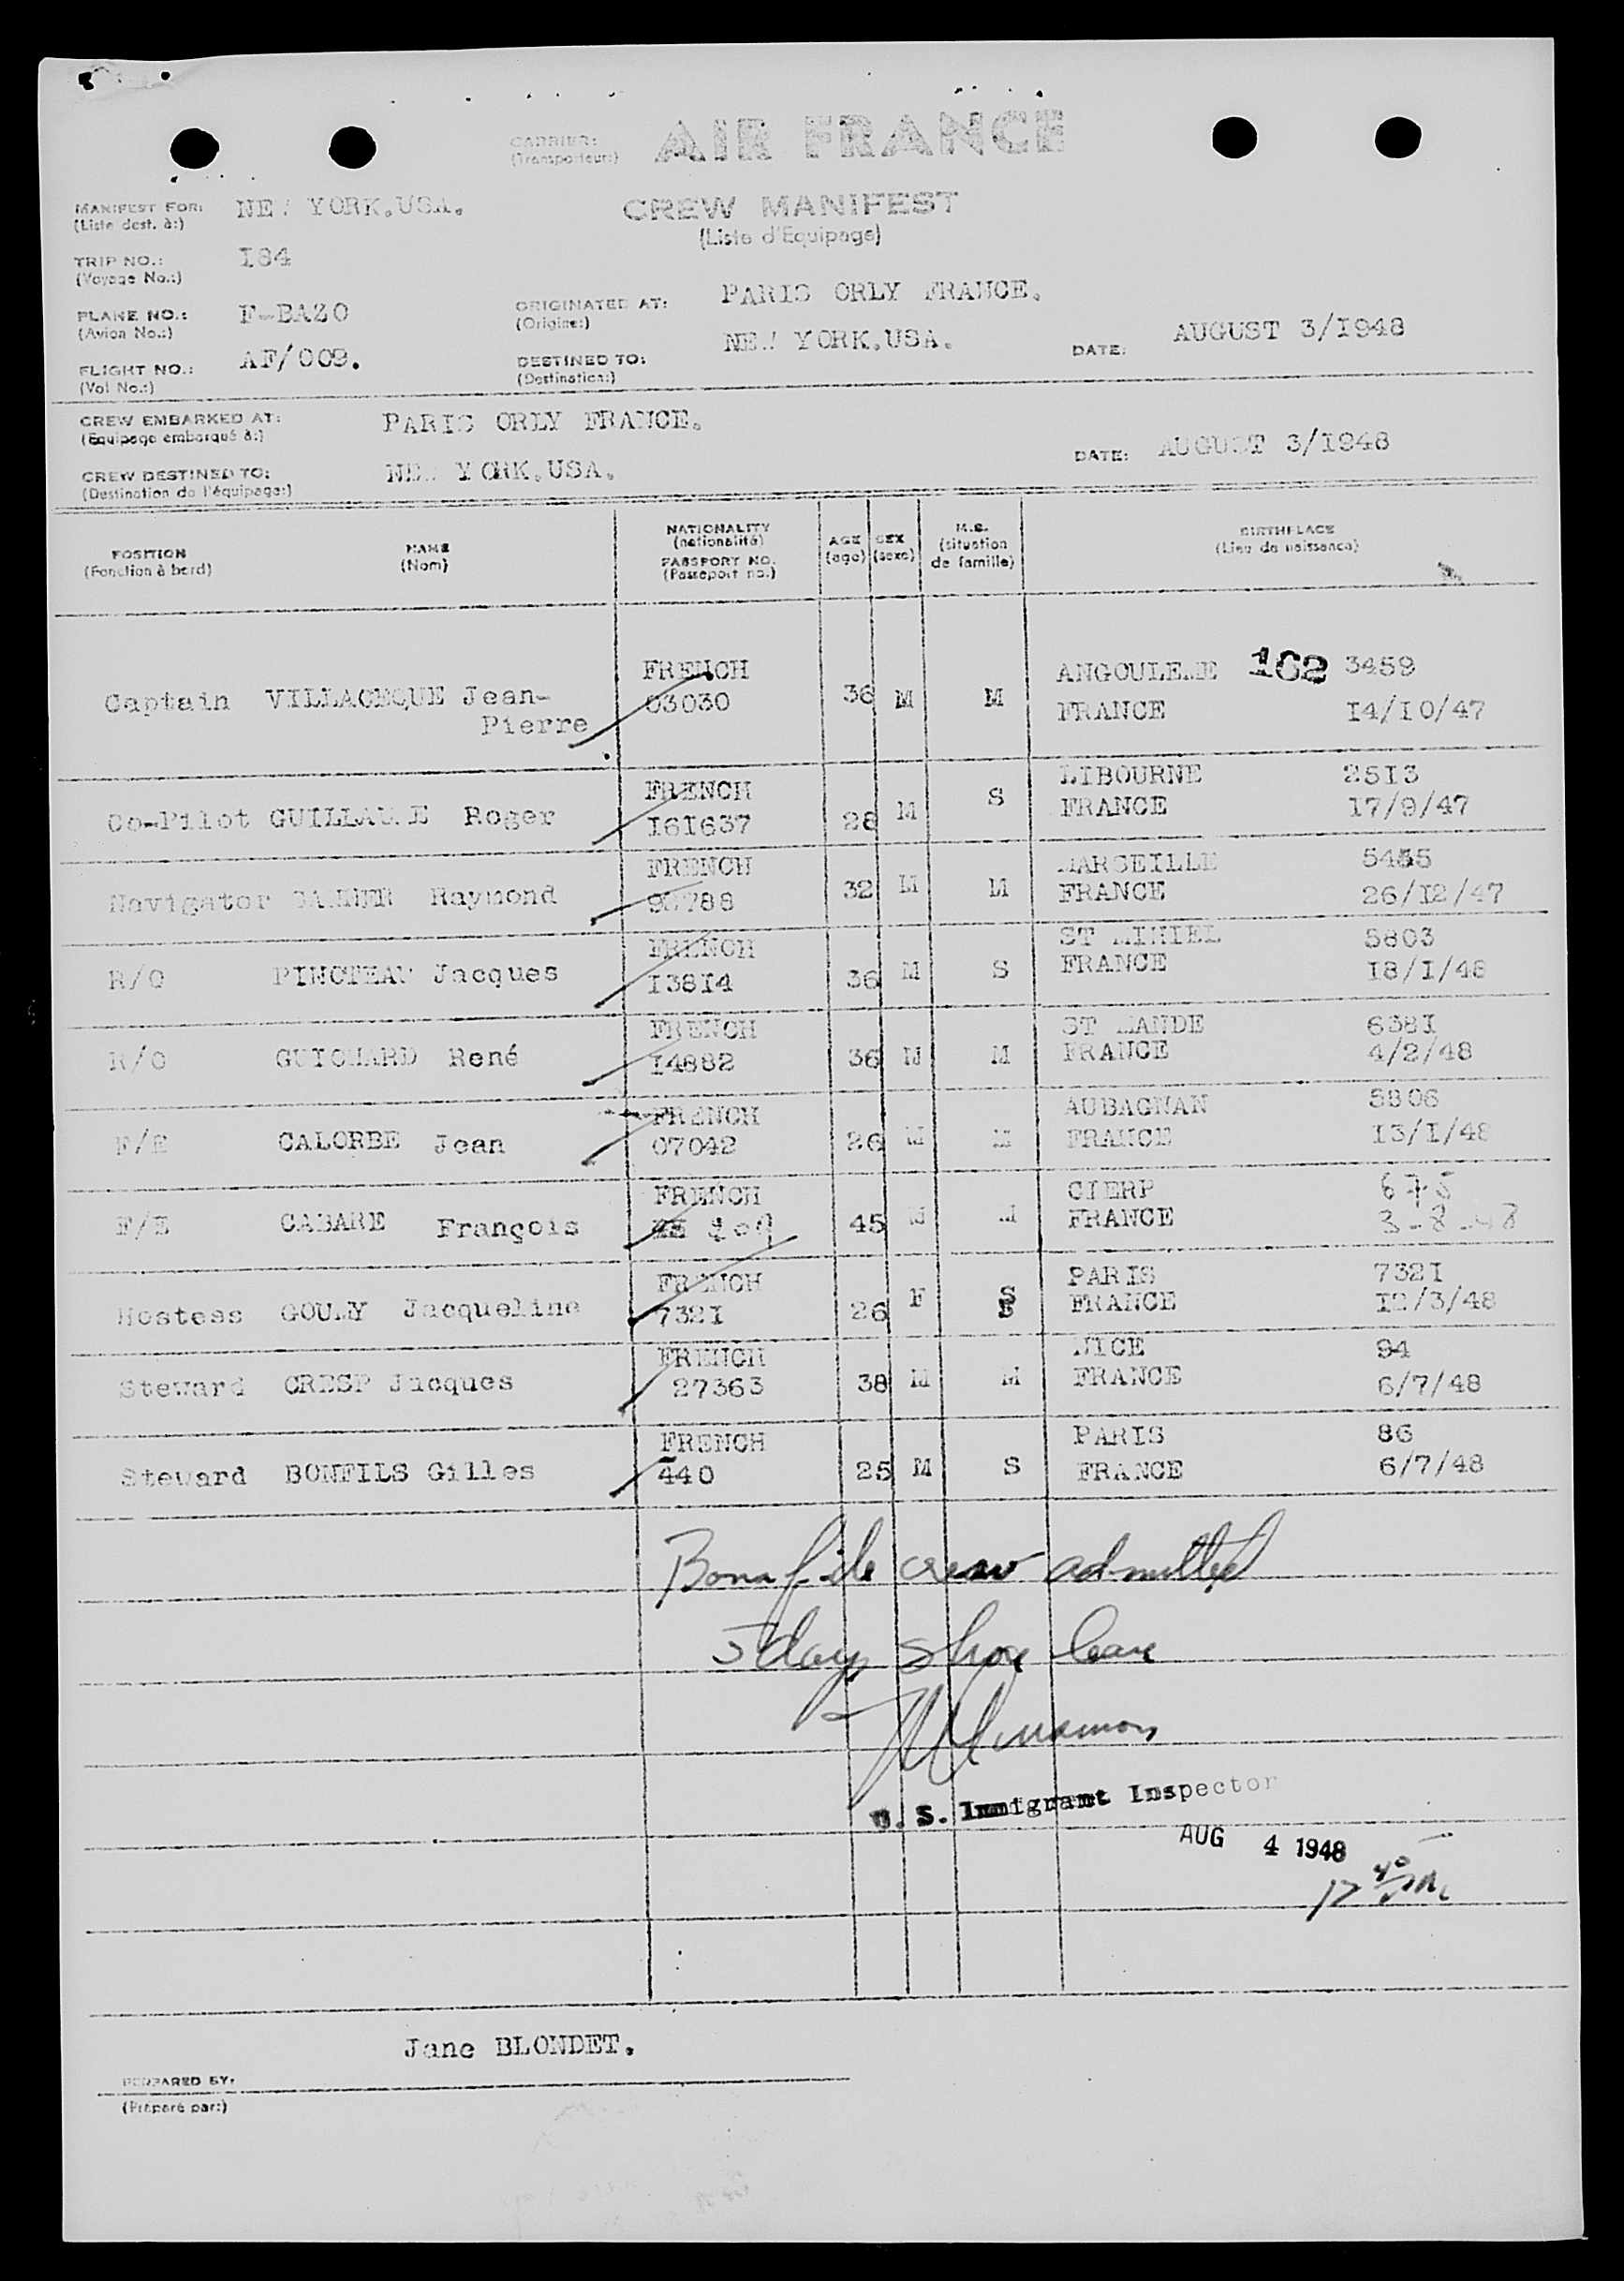 CARRIER: AIR FRANCE
(Transporteur:)
MANIFEST FOR: NEW YORK.USA.
(Liste dest. à:)
CREW MANIFEST
(Liste d'Equipage)
TRIP NO.: I84
(Voyage No.:)
PLANE NO.: F-BAZO
(Avion No.:)
ORIGINATED AT: PARIS ORLY FRANCE.
(Origine:)
FLIGHT NO.: AF/009.
(Vol No.:)
DESTINED TO: NEW YORK.USA.
(Destination:)
DATE: AUGUST 3/I948
CREW EMBARKED AT: PARIS ORLY FRANCE.
(Equipage embarqué à:)
CREW DESTINED TO: NEW YORK.USA.
(Destination de l'équipage:)
DATE: AUGUST 3/I948
POSITION
(Fonction à bord)
NAME
(Nom)
NATIONALITY
(nationalité)
PASSPORT NO.
(Passeport no.)
AGE
(age)
SEX
(sexe)
M.S.
(situation
de famille)
BIRTHPLACE
(Lieu de naissance)
FRENCH ANGOULEME 162 3459
Captain VILLACEQUE Jean- 03030 36 M M FRANCE I4/I0/47
Pierre
FRENCH S LIBOURNE 25I3
Co-Pilot GUILLAUME Roger I6I637 28 M FRANCE I7/9/47
FRENCH MARSEILLE
Navigator Raymond 32 M M FRANCE 26/I2/47
FRENCH ST MIHIEL 5803
R/O Jacques I38I4 36 M S FRANCE I8/I/48
FRENCH ST MANDE 638I
R/O GUICHARD René I4882 36 M M FRANCE 4/2/48
FRENCH AUBAGNAN 5806
F/E CALORBE Jean 07042 26 M M FRANCE I3/I/48
FRENCH CIERP 675
F/E CABARE François 45 M M FRANCE 3-8-48
FRENCH PARIS 732I
Hostess GOUMY Jacqueline 732I 26 F S FRANCE I2/3/48
FRENCH NICE 94
Steward CRESP Jacques 27363 38 M M FRANCE 6/7/48
FRENCH PARIS 86
Steward BONFILS Gilles 440 25 M S FRANCE 6/7/48
Bona fide crew admitted
5 days shore leave
U. S. Immigrant Inspector
AUG 4 1948
Jane BLONDET.
PREPARED BY:
(Préparé par:)